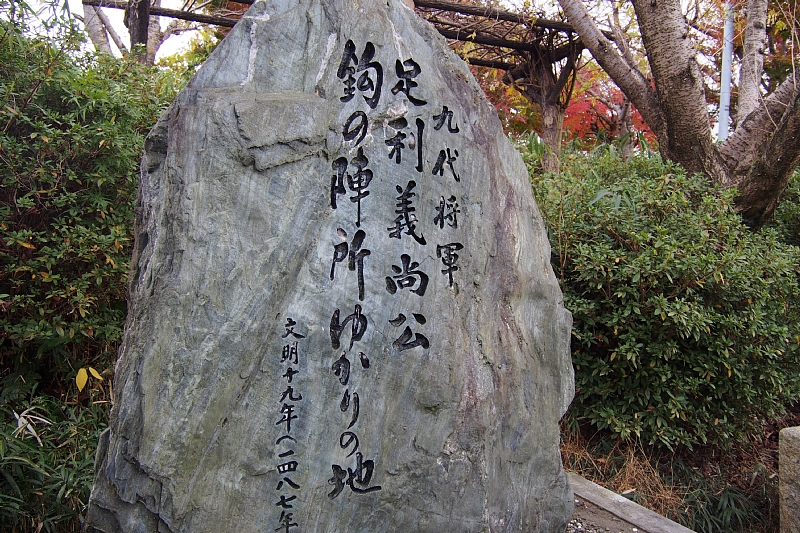 九代将軍
足利義尚公
鈎の陣所ゆかりの地
文明十九年(一四八七年